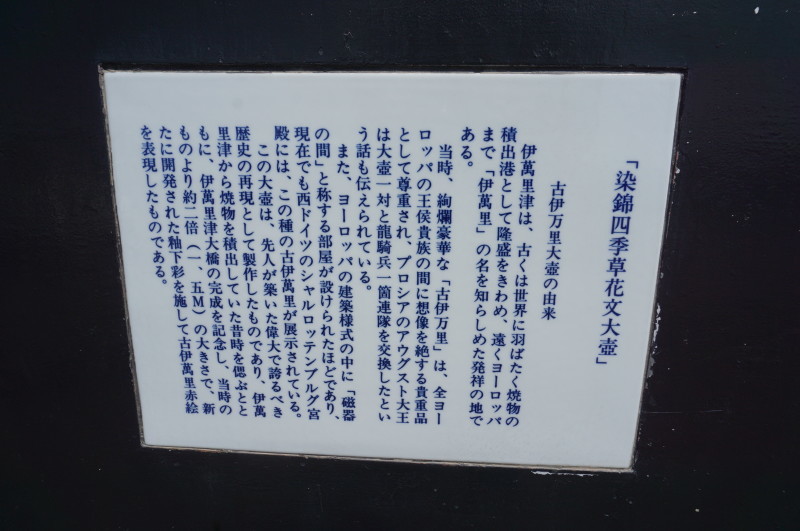 「染錦四季草花文大壺」
古伊万里大壺の由来
伊萬里津は、古くは世界に羽ばたく焼物の
積出港として隆盛をきわめ、遠くヨーロッパ
まで「伊萬里」の名を知らしめた発祥の地で
ある。
当時、絢爛豪華な「古伊万里」は、全ヨー
ロッパの王侯貴族の間に想像を絶する貴重品
として尊重され、プロシアのアウグスト大王
は大壺一対と龍騎兵一箇連隊を交換したとい
う話も伝えられている。
また、ヨーロッパの建築様式の中に「磁器
の間」と称する部屋が設けられたほどであり、
現在でも西ドイツのシャルロッテンブルグ宮
殿には、この種の古伊萬里が展示されている。
この大壺は、先人が築いた偉大で誇るべき
歴史の再現として製作したものであり、伊萬
里津から焼物を積出していた昔時を偲ぶとと
もに、伊萬里津大橋の完成を記念し、当時の
ものより約二倍（一、五M）の大きさで、新
たに開発された釉下彩を施して古伊萬里赤絵
を表現したものである。